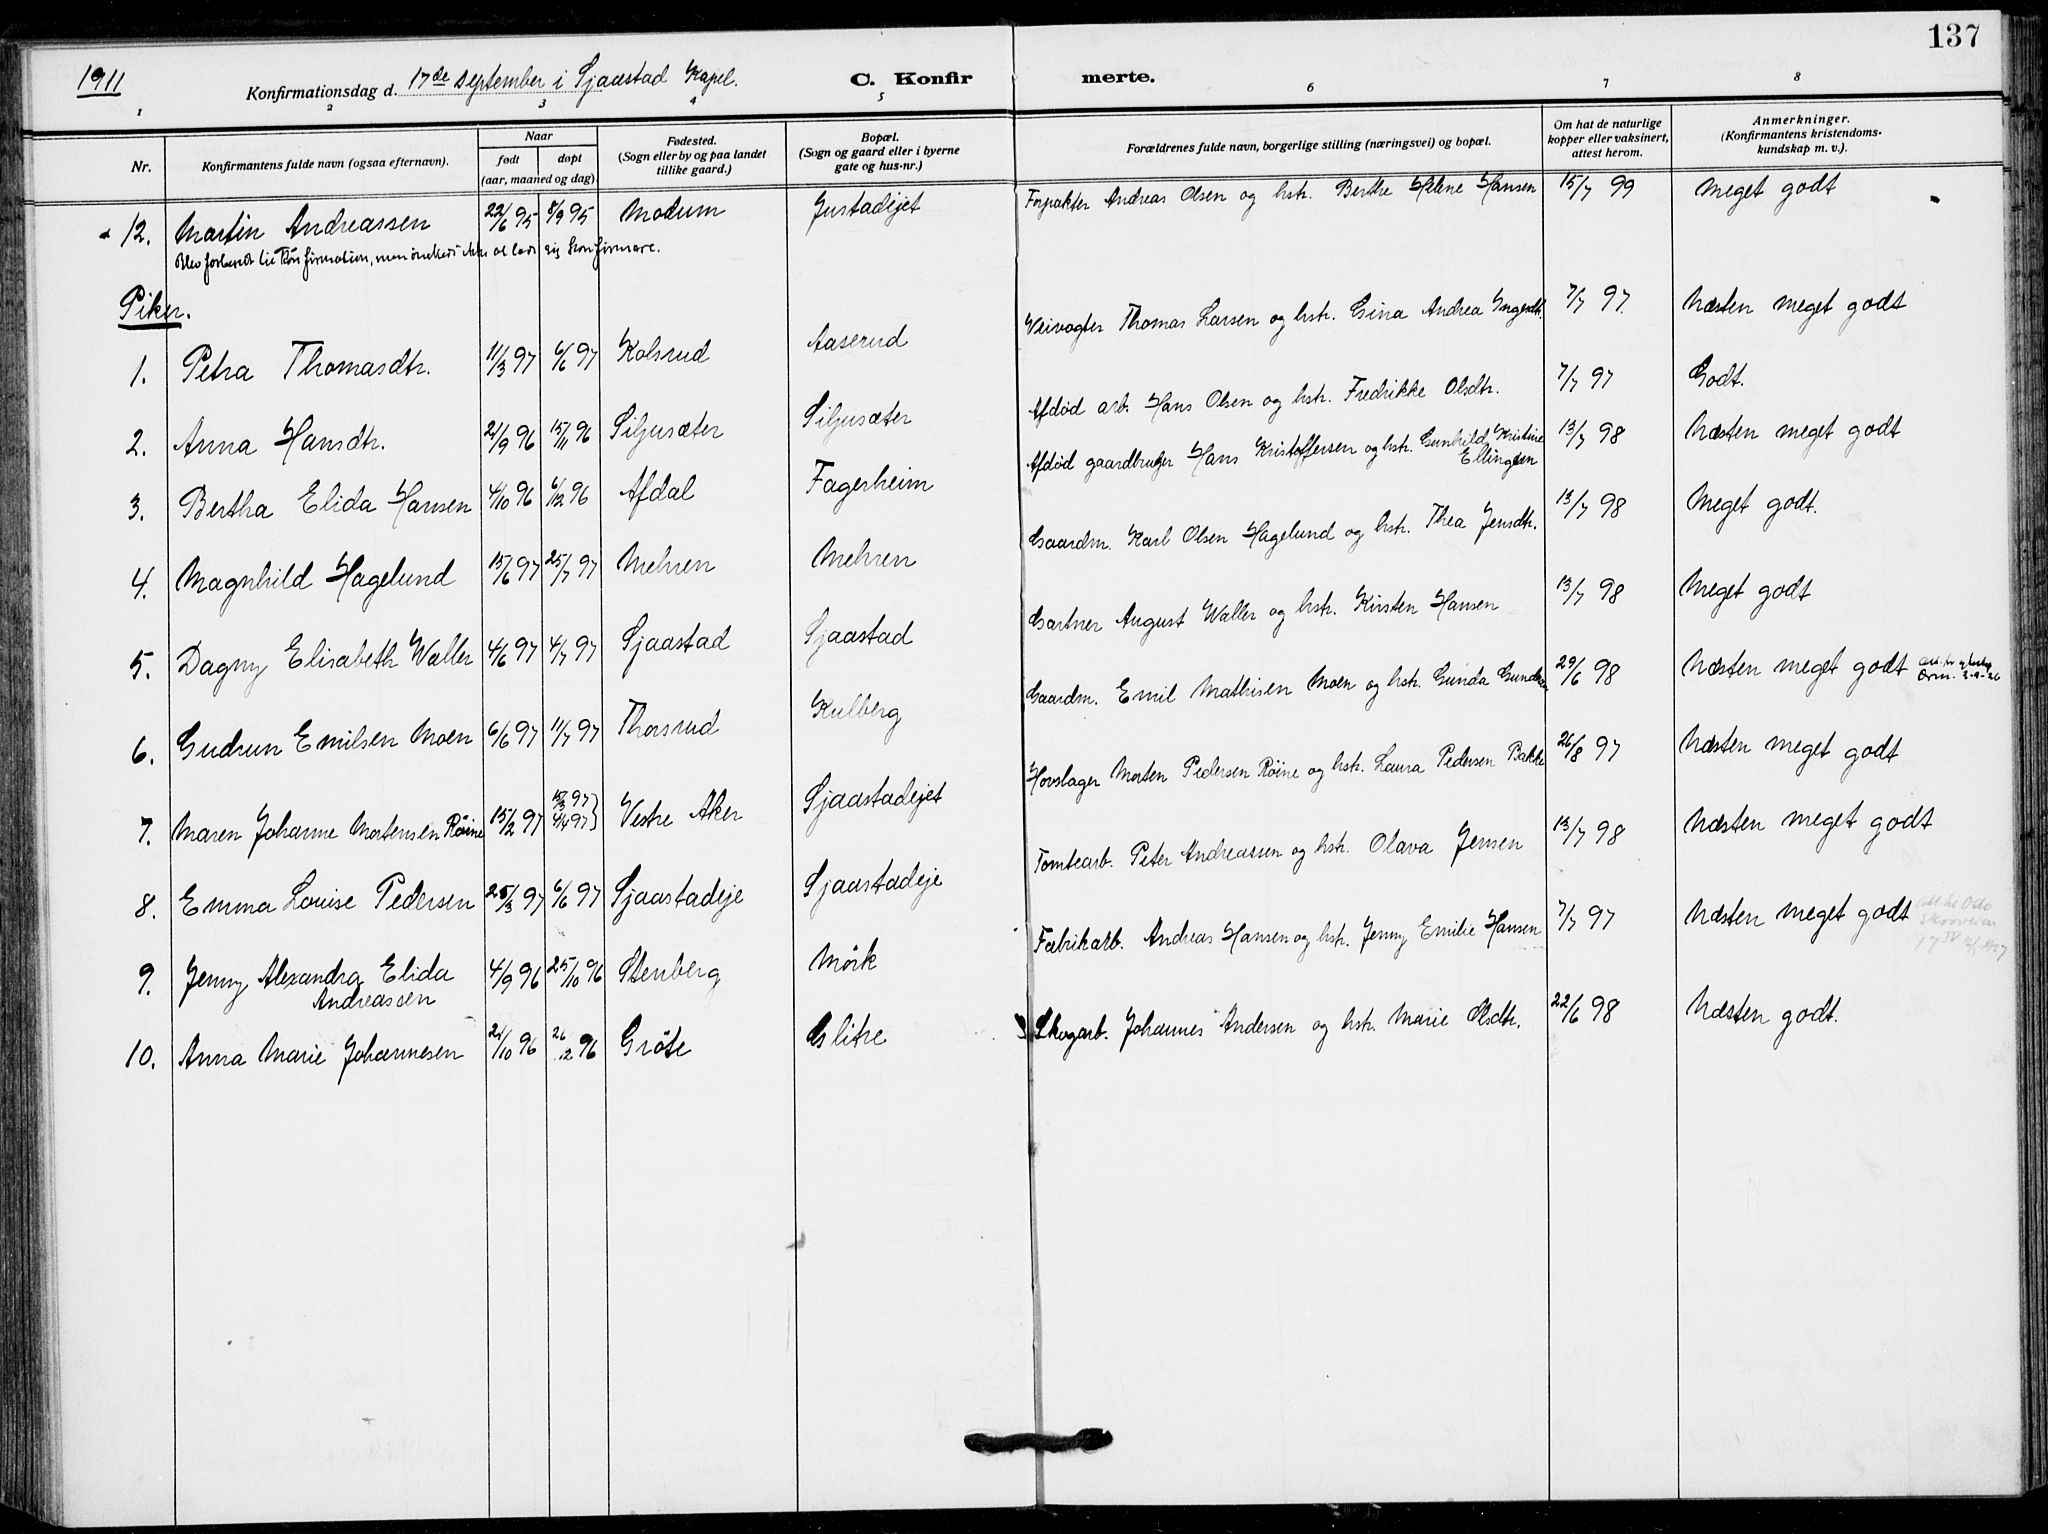 137
1911
Konfirmationsdag d. 17de september i Sjaastad Kapel. C. Konfirmerte.
1 2 3 4 5 6 7 8
Nr. Konfirmantens fulde navn (ogsaa efternavn). Naar født døpt (aar, maaned og dag) Fødested. (Sogn eller by og paa landet tillike gaard.) Bopæl. (Sogn og gaard eller i byerne gate og hus-nr.) Forældrenes fulde navn, borgerlige stilling (næringsvei) og bopæl. Om hat de naturlige kopper eller vaksinert, attest herom. Anmerkninger. (Konfirmantens kristendoms-kundskap m. v.).
12. Martin Andreassen 22/6 95 8/9 95 Modum Justadejet Forpakter Andreas Olsen og hstr. Berthe Helene Hansen 15/7 99 Meget godt
Blev forberedt til Konfirmation, men ønsket ikke at lade sig konfirmere.
Piker.
1. Petra Thomasdtr. 11/3 97 6/6 97 Kolsrud Aaserud Veivogter Thomas Larsen og hstr. Gina Andrea 7/7 97. Næsten meget godt
2. Anna Hansdtr. 21/9 96 15/11 96 Siljusæter Siljusæter Afdød arb. Hans Olsen og hstr. Fredrikke Olsdtr. 7/7 97 Godt.
3. Bertha Elida Hansen 4/10 96 6/12 96 Afdal Fagerheim Afdød gaardbruger Hans Kristoffersen og hstr. Gunhild Kristine Ellingsen 13/7 98 Næsten meget godt
4. Magnhild Hagelund 15/6 97 25/7 97 Mehren Mehren Gaardm. Karl Olsen Hagelund og hstr. Thea Jensdtr. 13/7 98 Meget godt.
5. Dagny Elisabeth Waller 4/6 97 4/7 97 Sjaastad Sjaastad Gartner August Waller og hstr. Kirsten Hansen 13/7 98 Meget godt
6. Gudrun Emilsen Moen 6/6 97 11/7 97 Thorsrud Kulberg Gaardm. Emil Mathisen Moen og hstr. Gunda Gundersen 29/6 98 Næsten meget godt
7. Maren Johanne Mortensen Røine 15/2 97 15/3 97 4/4 97} Vestre Aker Sjaastadejet Hovslager Morten Pedersen Røine og hstr. Laura Pedersen Bakke 26/8 97 Næsten meget godt
8. Emma Louise Pedersen 25/3 97 6/6 97 Sjaastadeje Sjaastadeje Tomtearb. Peter Andreassen og hstr. Olava Jensen 13/7 98 Næsten meget godt
9. Jenny Alexandra Elida Andreassen 4/9 96 25/10 96 Stenberg Mörk Fabrikarb. Andreas Hansen og hstr. Jenny Emilie Hansen 7/7 97 Næsten meget godt
10. Anna Marie Johannesen 21/10 96 26/12 96 Gröte Glitre Skogarb. Johannes Andersen og hstr. Marie Olsdtr. 22/6 98 Næsten godt.